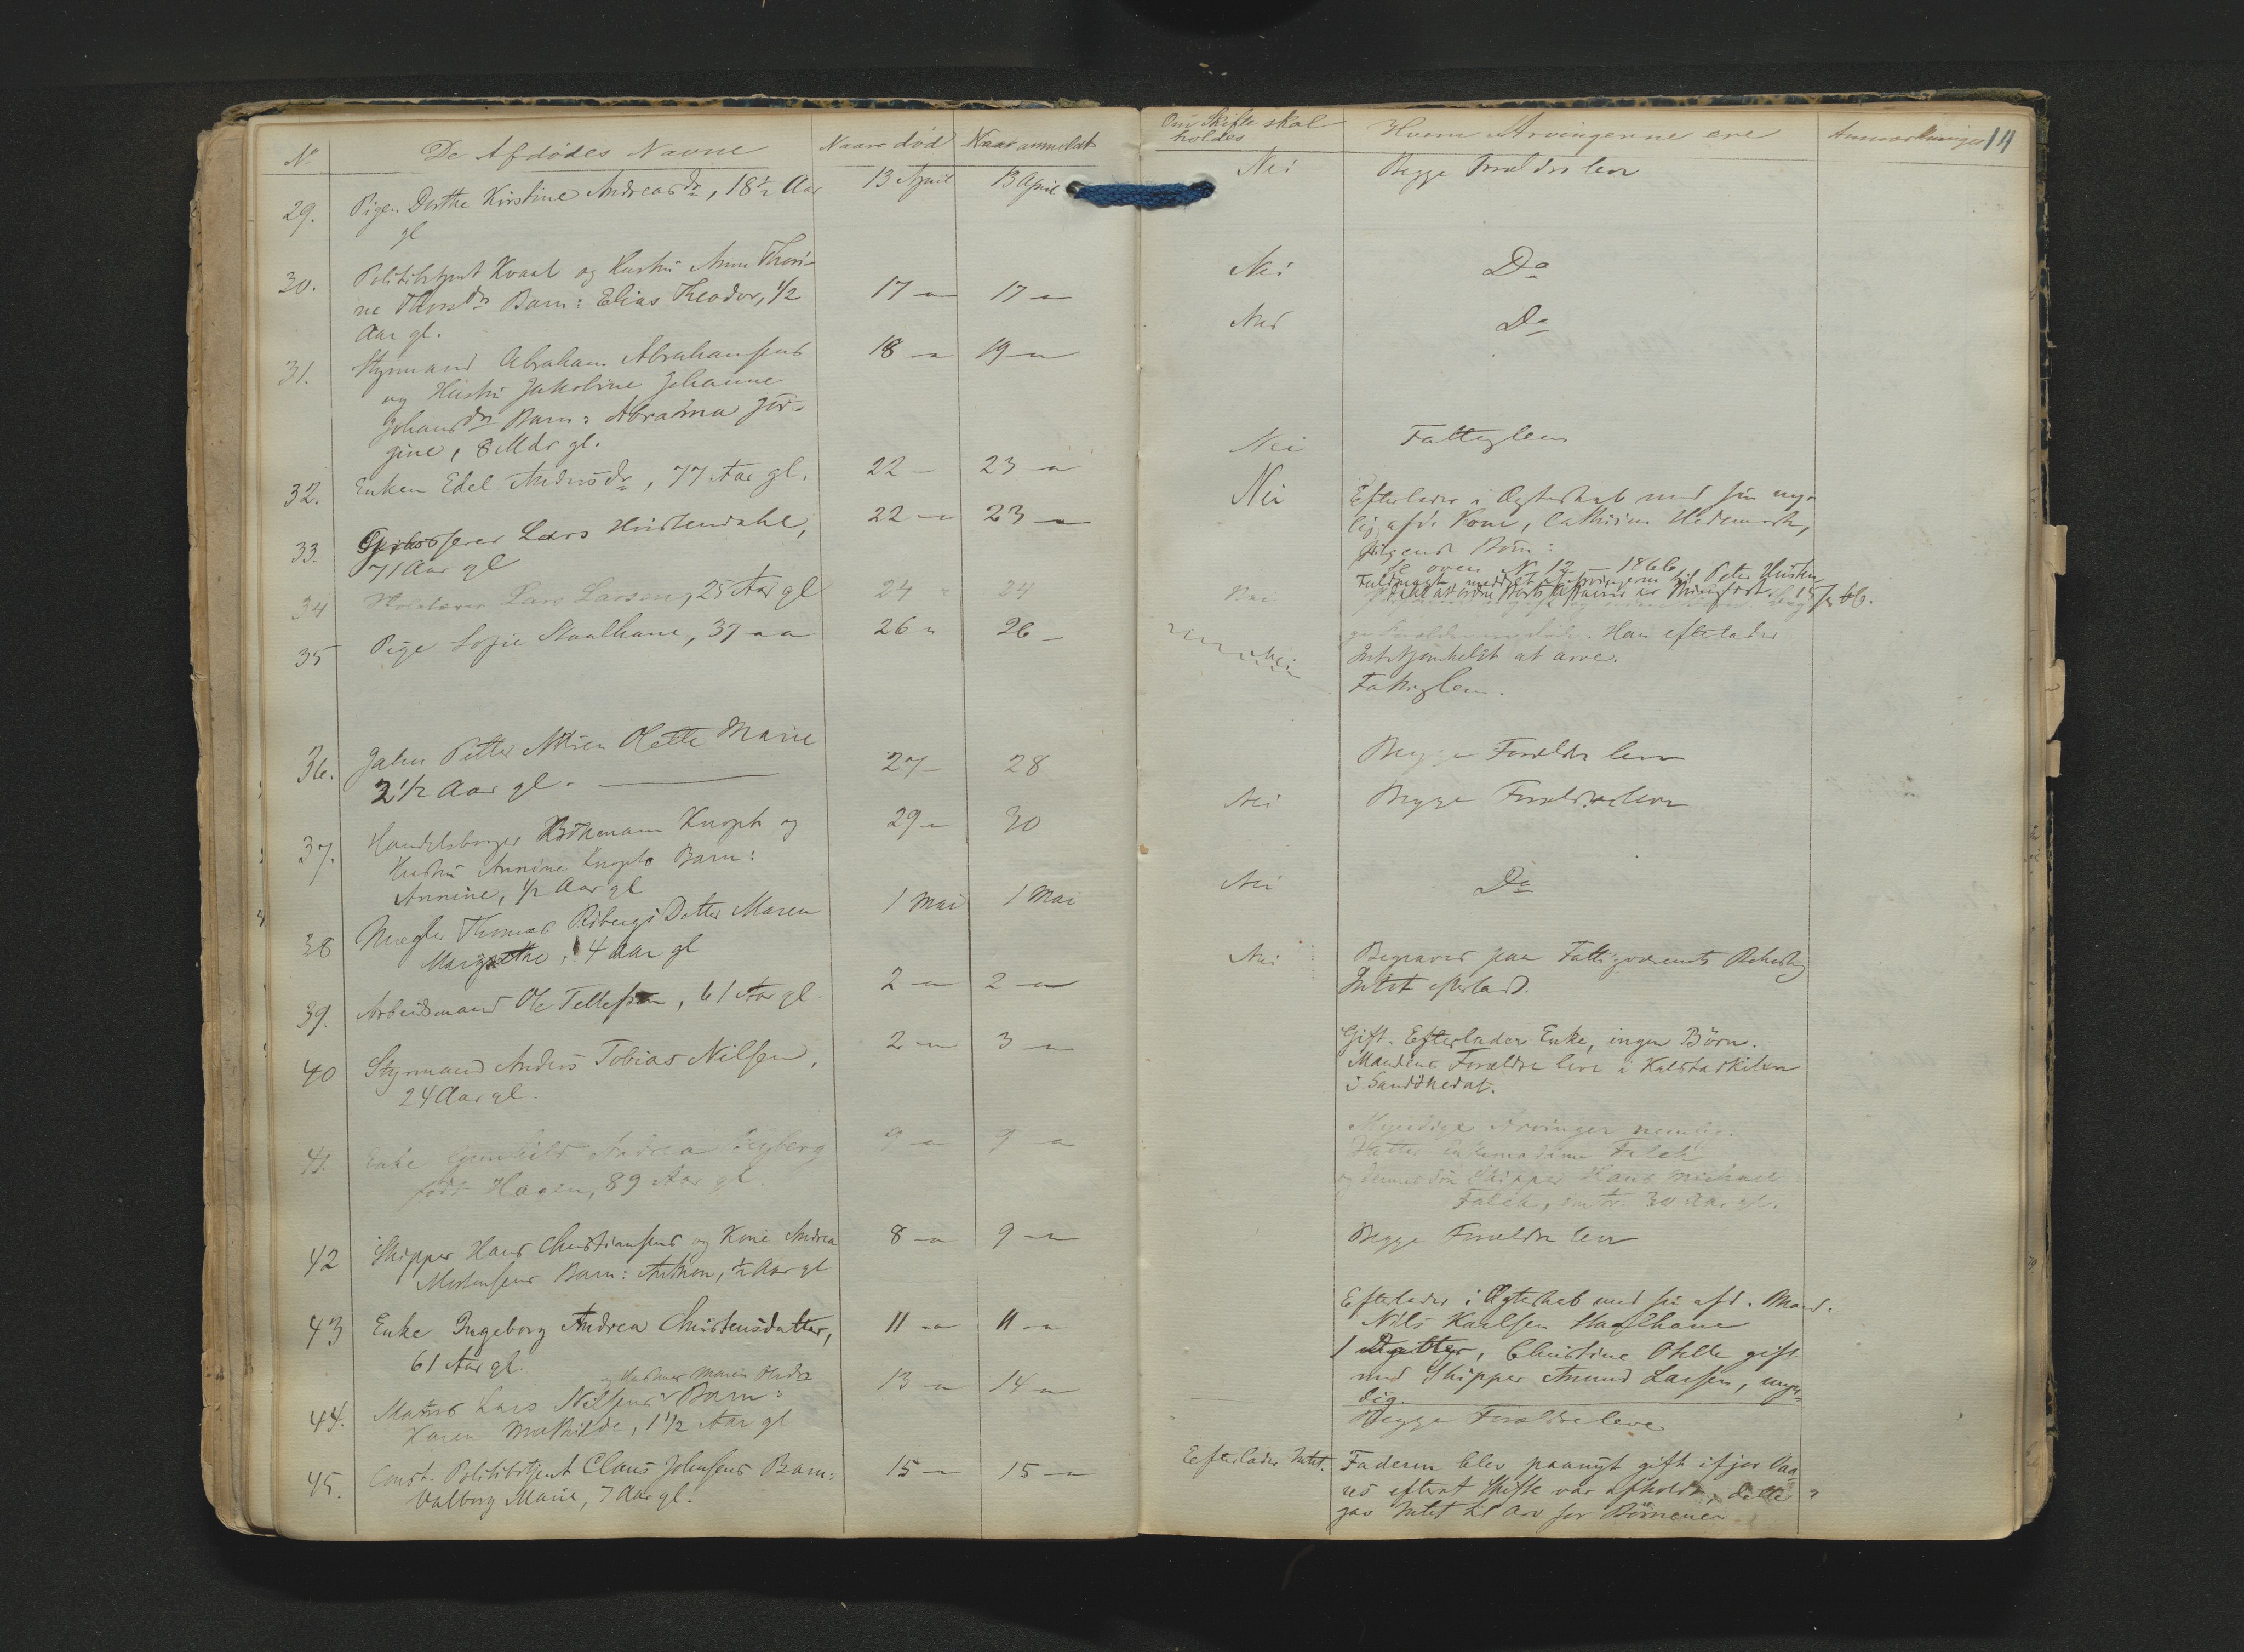 No
De Afdødes Navne
Naar død
Naar anmeldt
29.
Pigen Dorthe Kirstine Andreasdr, 18½ Aar
gl
13 April
13 April
30.
Politibetjent Kvaal og Hustru Anne Thori-
ne Thorsdrs Barn: Elias Theodor, 1/2
Aar gl.
17 –
17 –
31.
Styrmand Abraham Abrahamsens
og Hustru Jakobine Johanne
Johansdrs Barn: Abramina Jör-
gine, 8 Mdr gl.
18 –
19 –
32.
Enken Edel Andersdr, 77 Aar gl.
22 –
23 –
33.
Lars Hustendahl,
71 Aar gl
22 –
23 –
34
Lars Larsen, 25 Aar gl
24 "
24
35
Pige Sofie Staalhane, 37 " "
26 "
26 –
36.
Jahn Petter Olette Marie
2 1/2 Aar gl.
27 –
28
37.
Handelsborger Knoph og
Hustru Annine Knophs Barn:
Annine, 1/2 Aar gl
29 –
30
38
Mægler Thomas Ribergs Datter Maren
Margrethe, 4 Aar gl
1 Mai
1 Mai
39.
Arbeidsmand Ole Tellefsen, 61 Aar gl
2 –
2 –
40
Styrmand Anders Tobias Nilsen,
24 Aar gl.
2 –
3 –
41.
Enke Gunhild Andrea
født Hagen, 89 Aar gl.
9 –
9 –
42
Skipper Hans Christiansens og Kone Andrea
Mortensens Barn: Anthon, ½ Aar gl
8 –
9 –
43
Enke Ingeborg Andrea Christensdatter,
61 Aar gl.
11 –
11 –
44.
og Hustrues Maren Olsdrs
Matros Lars Nilsens Barn:
Karen Mathilde, 1 1/2 Aar gl
13 –
14 –
45.
Const. Politibetjent Claus Johnsens Barn:
Valborg Marie, 7 Aar gl.
15 –
15 –
Om Skifte skal
holdes
Hvem Arvingerne ere
Anmærkninger
14
Nei
Begge Forældre leve
Nei
Do
Nei
Do
Nei
Fattiglem
Nei
Efterlader i Ægteskab med sin ny-
lig afd. Kone, Cathrine Hedemark,
følgende Börn:
Se oven No 12 – 1866
Fuldmagt, meddelt af Arvingerne til Peter Husten-
dahl
Nei
Han efterlader
Intetsomhelst at arve.
Nei
Fattiglem.
Begge Forældre leve
Nei
Begge Forældre leve
Nei
Do
Nei
Begraves paa Fattigvæsenets Bekostng
Intet efterladt.
Gift. Efterlader Enke, ingen Börn.
Mandens Forældre leve i Kalstadkilen
i Sandøkedal.
Myndige Arvinger nemlig:
Datter Enkemadame Falck
og dennes Søn Skipper Hans Michael
Falck, omtr. 30 Aar gl.
Begge Forældre leve
Efterlader i Ægteskab med sin afd. Mand.
Nils Karlsen Staalhane
1 Datter, Christine Otelle gift
med Skipper Amund Larsen, myn-
dig.
Begge Forældre leve
Efterlader Intet.
Faderen blev paanyt gift ifjor Vaa-
res efterat Skifte var afholdt, dette
gav Intet til Arv for Börnene